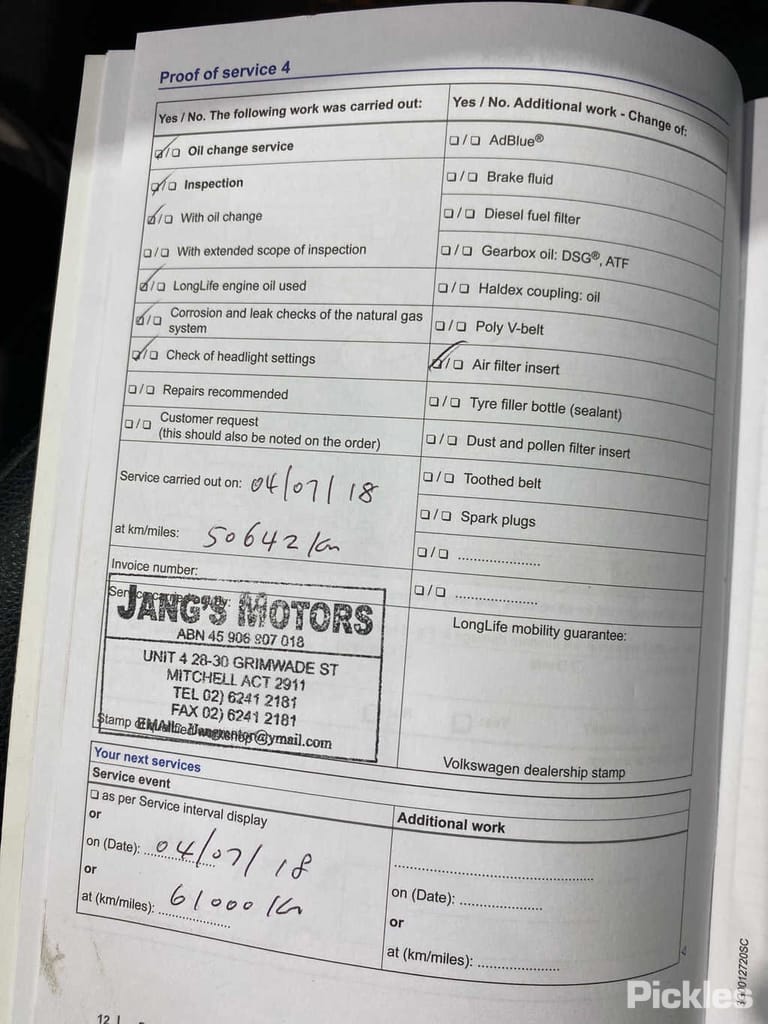 Proof of service 4
Yes / No. The following work was carried out:
☑/☐ Oil change service
☑/☐ Inspection
☑/☐ With oil change
☐/☐ With extended scope of inspection
☑/☐ LongLife engine oil used
☑/☐ Corrosion and leak checks of the natural gas
system
☑/☐ Check of headlight settings
☐/☐ Repairs recommended
☐/☐ Customer request
(this should also be noted on the order)
Service carried out on: 04/07/18
at km/miles: 50642 km
Invoice number:
JANG'S MOTORS
ABN 45 906 807 018
UNIT 4 28-30 GRIMWADE ST
MITCHELL ACT 2911
TEL 02) 6241 2181
FAX 02) 6241 2181
Yes / No. Additional work - Change of:
☐/☐ AdBlue®
☐/☐ Brake fluid
☐/☐ Diesel fuel filter
☐/☐ Gearbox oil: DSG®, ATF
☐/☐ Haldex coupling: oil
☐/☐ Poly V-belt
☑/☐ Air filter insert
☐/☐ Tyre filler bottle (sealant)
☐/☐ Dust and pollen filter insert
☐/☐ Toothed belt
☐/☐ Spark plugs
☐/☐ ....................
☐/☐ ....................
LongLife mobility guarantee:
Volkswagen dealership stamp
Your next services
Service event
☐ as per Service interval display
or
on (Date): 04/07/18
or
at (km/miles): 61000 km
Additional work
on (Date): ....................
or
at (km/miles): ....................
12
Pickles